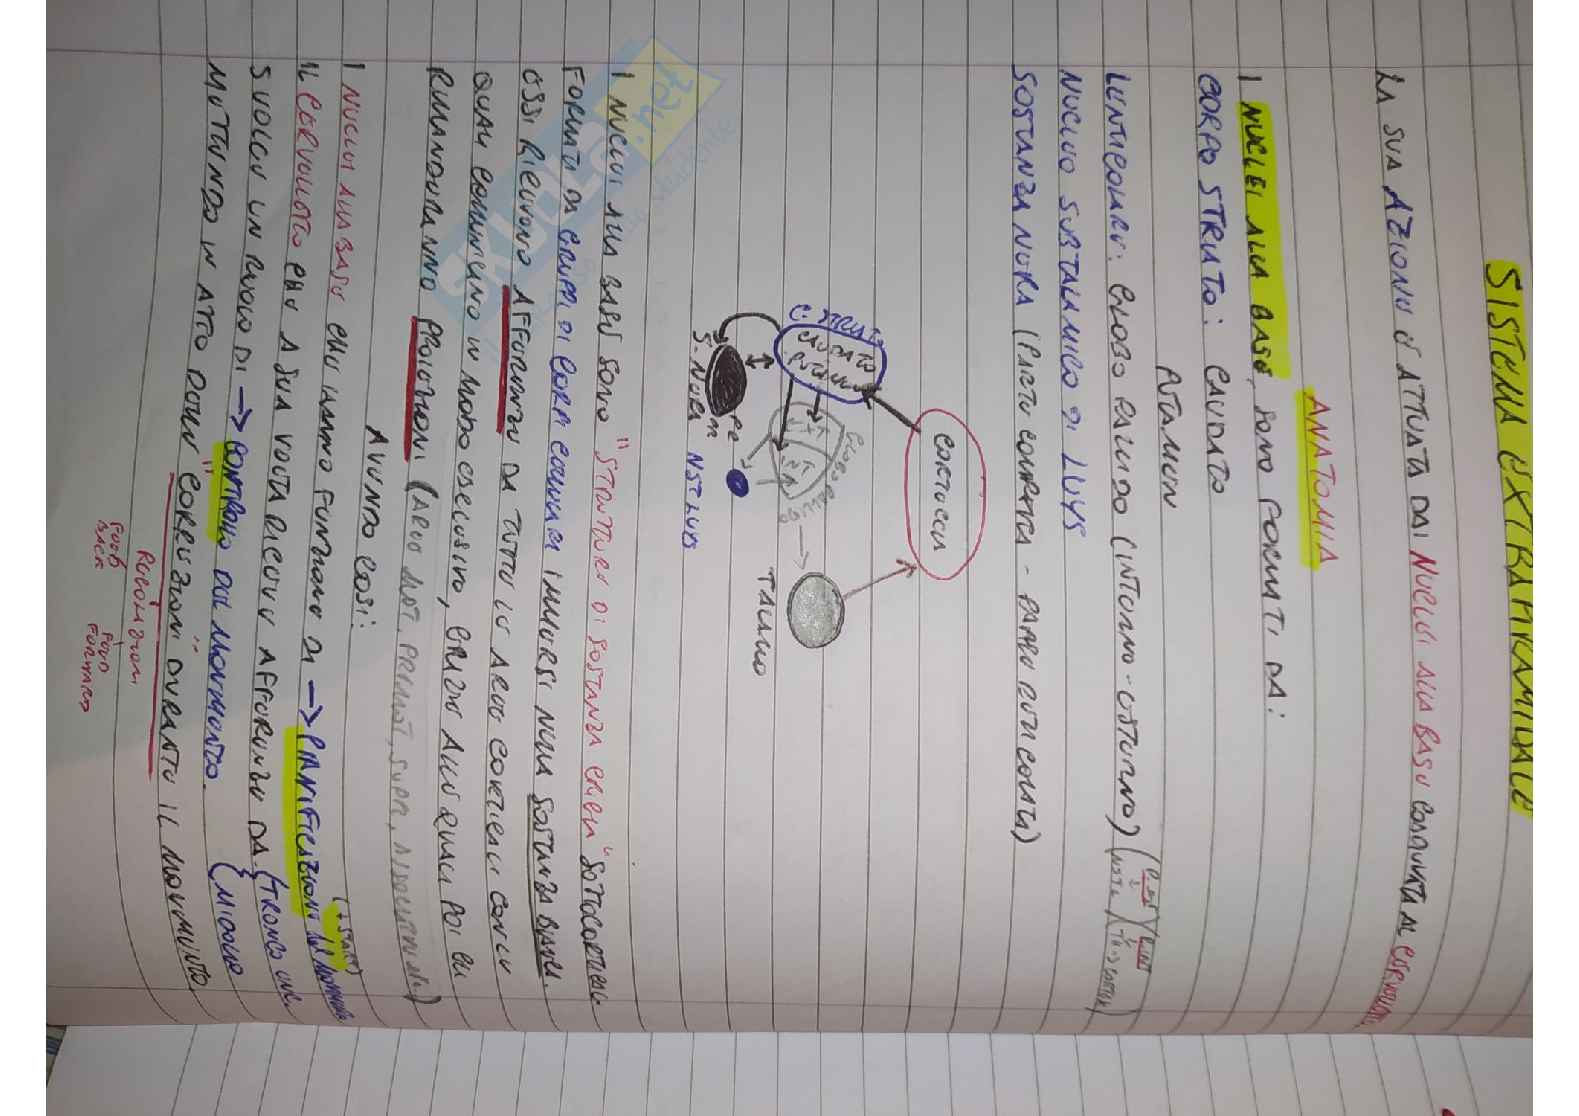 SISTEMA EXTRAPIRAMIDALE
LA SUA AZIONE È ATTUATA DAI NUCLEI ALLA BASE COADIUVATA AL CERVELLETTO
ANATOMIA
I NUCLEI ALLA BASE, SONO FORMATI DA:
CORPO STRIATO: CAUDATO
PUTAMEN
LENTICOLARE: GLOBO PALLIDO (INTERNO - ESTERNO)
NUCLEO SUBTALAMICO DI LUYS
SOSTANZA NERA (PARTE COMPATTA - PARTE RETICOLATA)
CORTECCIA
C. STRIATO
CAUDATO
PUTAMEN
GLOBO
TALAMO
PC
PR
S. NERA
NST LUYS
I NUCLEI ALLA BASE SONO "STRUTTURE DI SOSTANZA GRIGIA" SOTTOCORTICALE
FORMATI DA GRUPPI DI CORPI CELLULARI IMMERSI NELLA SOSTANZA BIANCA.
ESSI RICEVONO AFFERENZE DA TUTTE LE AREE CORTICALI CON LE
QUALI COMUNICANO IN MODO ESCLUSIVO, GRAZIE ALLE QUALI POI GLI
RIMANDERANNO PROIEZIONI (AREE MOT. PRIM, MOT, SUPP,
AVENDO COSI:
I NUCLEI ALLA BASE CHE HANNO FUNZIONE DI → PIANIFICAZIONE DEL MOVIMENTO
(+ START)
IL CERVELLETTO CHE A SUA VOLTA RICEVE AFFERENZE DA { TRONCO ENC.
{ MIDOLLO
SVOLGE UN RUOLO DI → CONTROLLO DEL MOVIMENTO.
METTENDO IN ATTO DELLE "CORREZIONI" DURANTE IL MOVIMENTO.
PROIEZIONI
FEED BACK
FEED FORWARD
SKUOLA.net